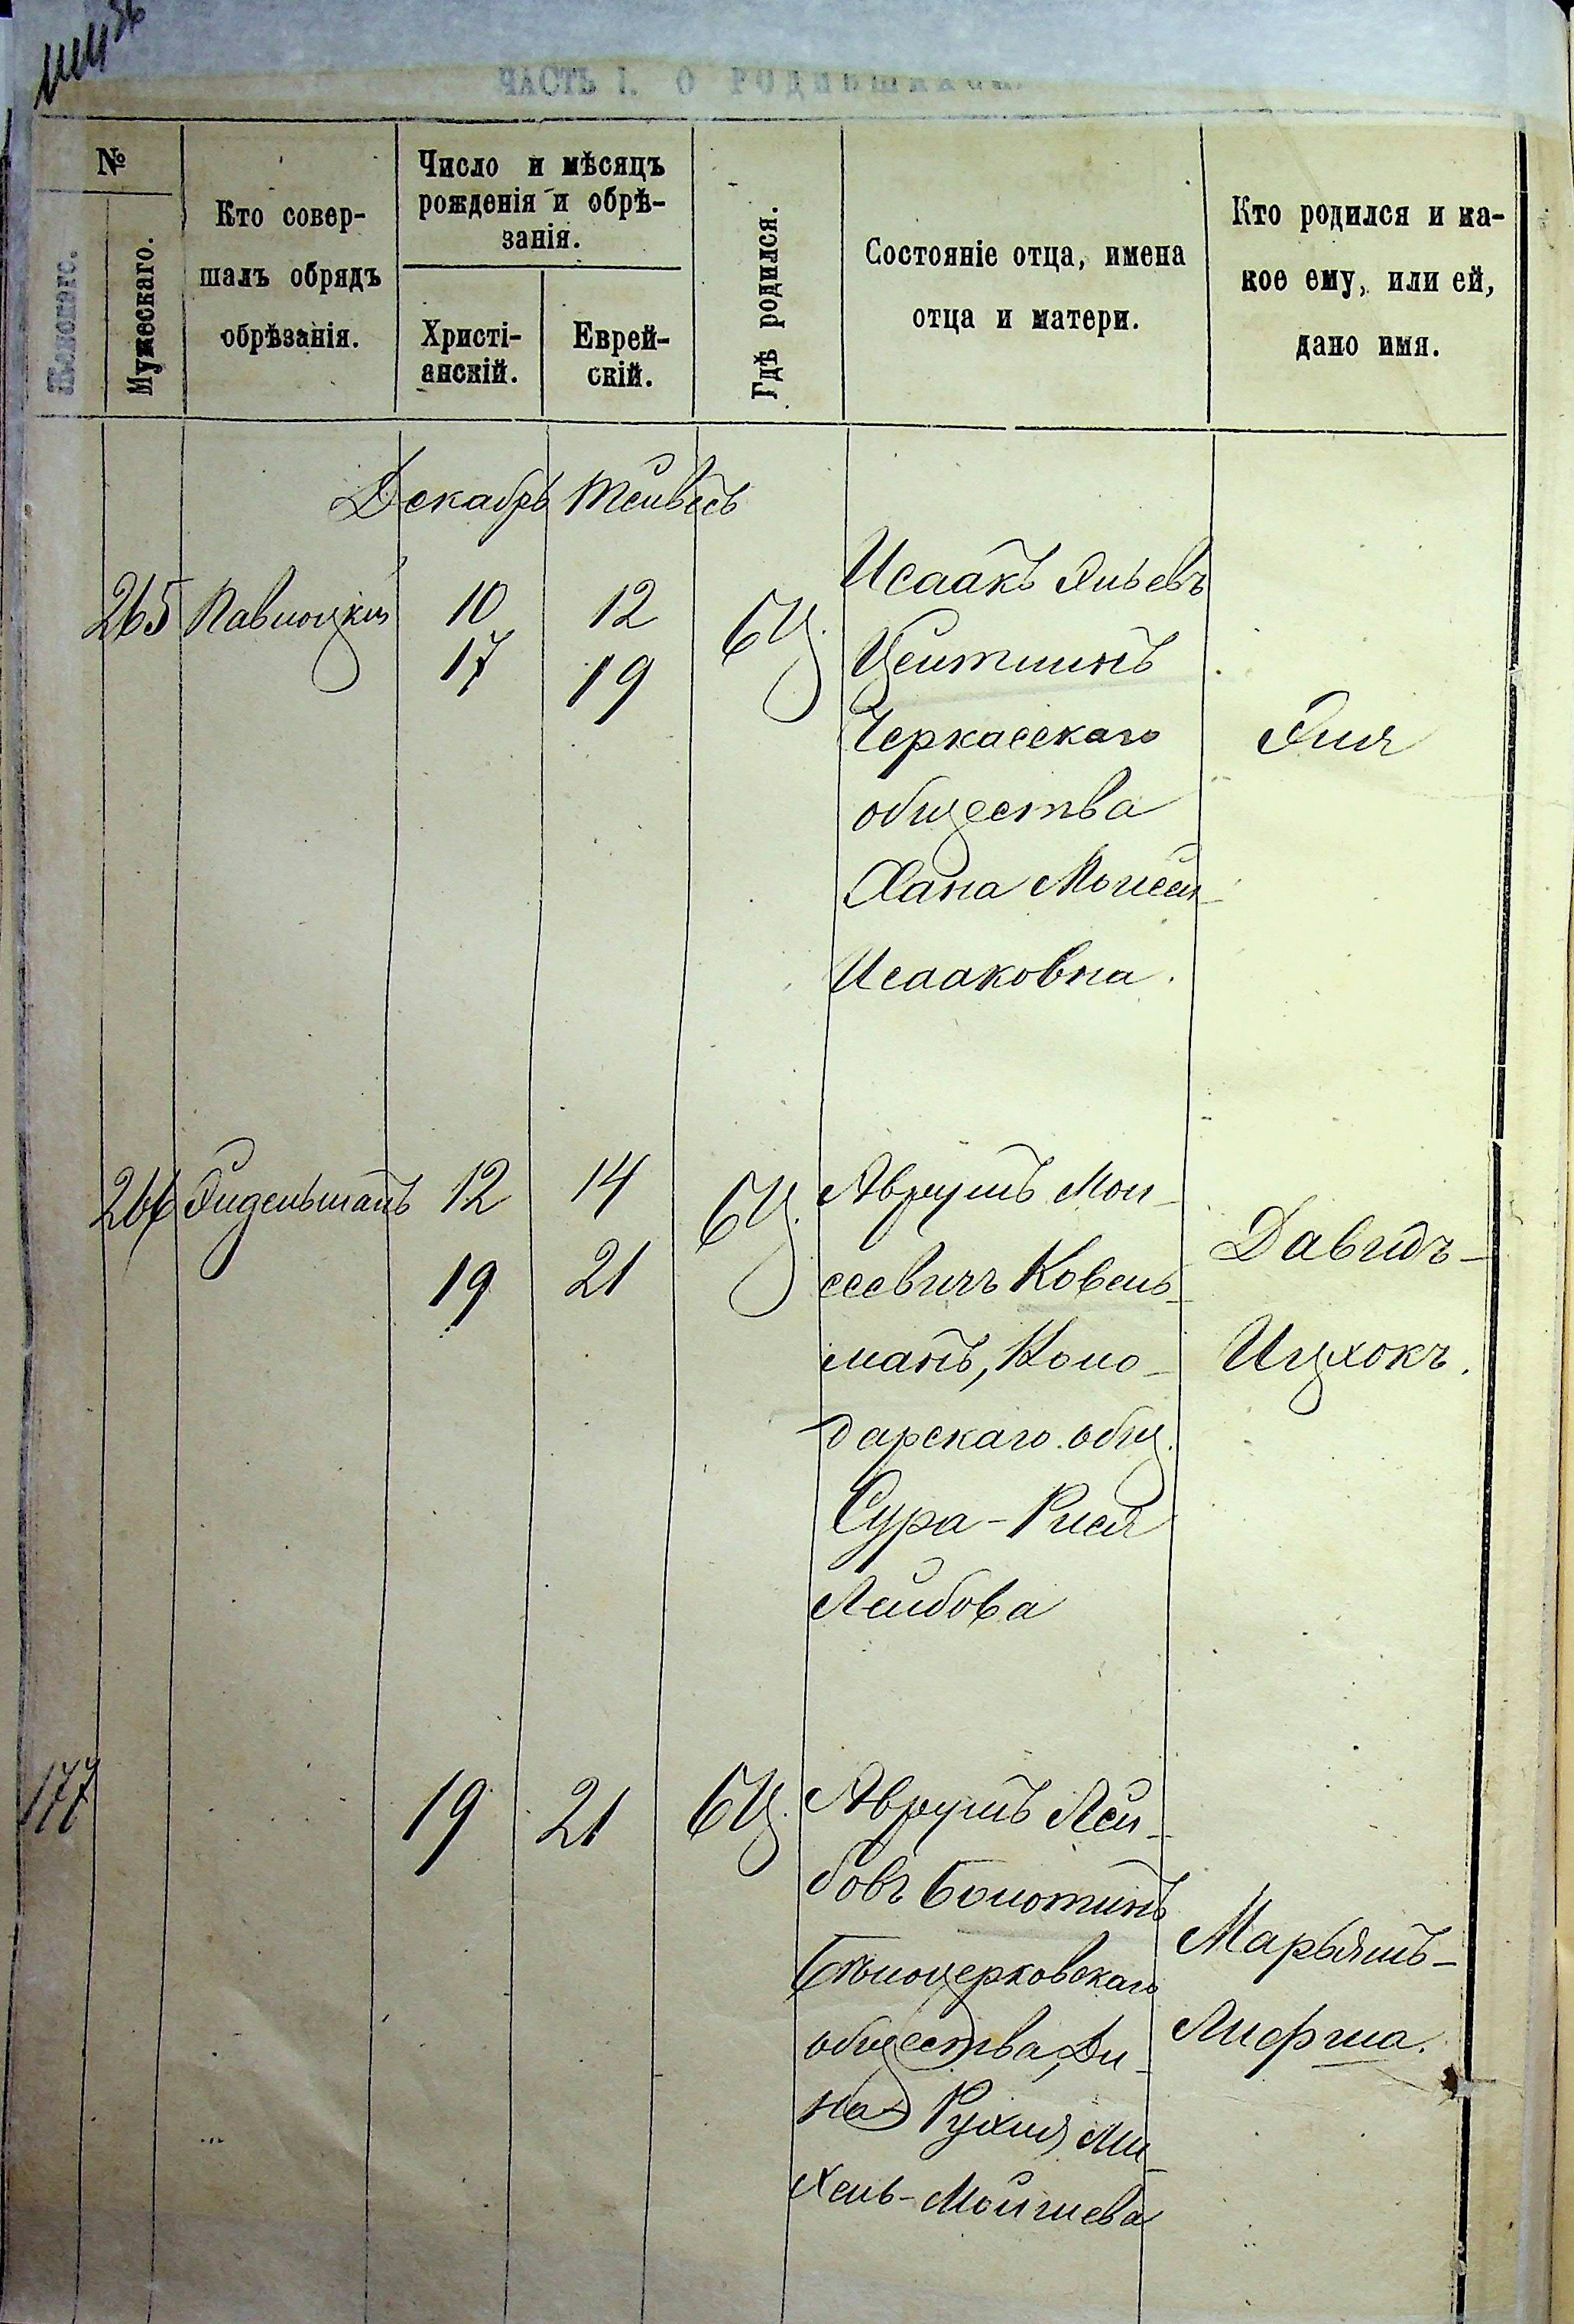 ЧАСТЬ I. О РОДИВШИХСЯ.
№
Женскаго.
Мужескаго.
Кто совер-
шалъ обрядъ
обрѣзанія.
Число и мѣсяцъ
рожденія и обрѣ-
занія.
Христі-
анскій.
Еврей-
скій.
Гдѣ родился.
Состояніе отца, имена
отца и матери.
Кто родился и ка-
кое ему, или ей,
дано имя.
Декабрь Тейвесъ
265 Павлоцкій 10 12 БЦ.
17 19
Исаакъ Эльевъ
Цейтлинъ
Черкасскаго
общества
Хана Мойсей-
Исааковна.
Эля
266 Эйдельманъ 12 14 БЦ.
19 21
Аврумъ Мои-
сеевичъ Ковель-
манъ, Коло-
дарскаго общ.
Сура-Рися
Лейбова
Давидъ-
Ицхокъ.
177 19 21 БЦ.
Аврумъ Лей-
бовъ Болотинъ
Бѣлоцерковскаго
общества, Ди-
на Рухля Ми-
хель-Мойшева
Марьямъ-